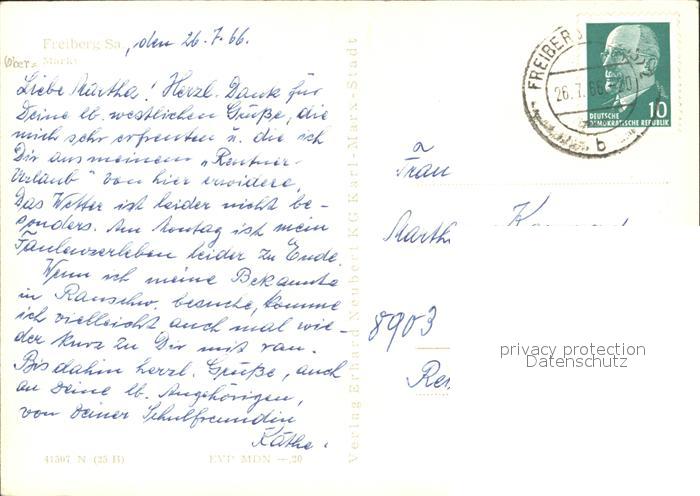 Freiberg Sa., den 26.7.66.
Ober=
Markt
Liebe Martha! Herzl. Dank für
Deine lb. westlichen Grüße, die
mich sehr erfreuten u. die ich
Dir aus meinem „Rentner-
Urlaub" von hier erwidere.
Das Wetter ist leider nicht be-
sonders. Am Montag ist mein
Faulenzerleben leider zu Ende.
Wenn ich meine Bekannte
in Rauschw. besuche, komme
ich vielleicht auch mal wie-
der kurz zu Dir mit ran.
Bis dahin herzl. Grüße, auch
an Deine lb. Angehörigen,
von Deiner Schulfreundin
Käthe.
41507 N (25 B)
EVP MDN -,20
Verlag Erhard Neubert KG Karl-Marx-Stadt
FREIBERG
26.7.66
b
10
DEUTSCHE
DEMOKRATISCHE REPUBLIK
Frau
Marth
8903
privacy protection
Datenschutz